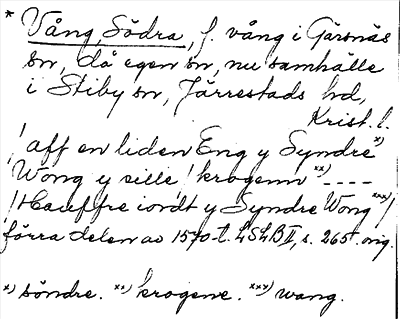 * Vång, Södra, f. vång i Gärsnäs
sn, då egen sn, nu samhälle
i Stiby sn, Järrestads hd,
Krist. l.
! aff en liden Eng y Syndre x)
Wong y sille! krogenn xx) ----
! Hauffre iordt y Syndre Wong xxx)!
förra delen av 1570-t. LSLB II, s. 265. orig.
x) söndre. xx) krogene. xxx) wang.